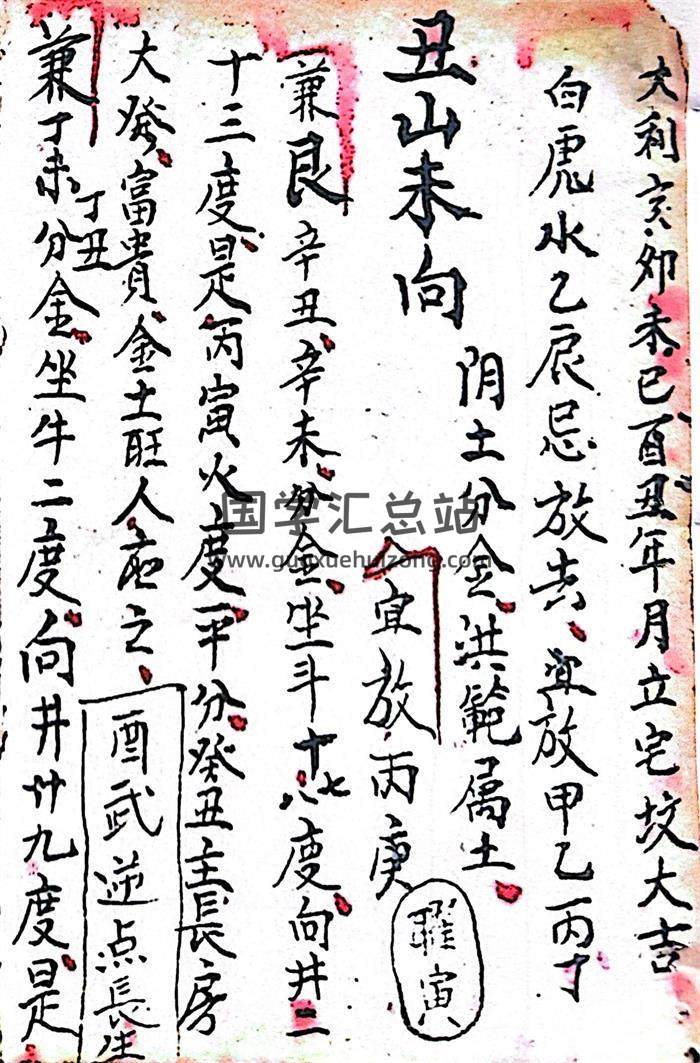 大利亥卯未巳酉丑年月立宅坟大吉
白虎水乙辰忌放去、宜放甲乙丙丁
丑山未向
阴土分金、洪範属土、
宜放丙庚
曜寅
兼艮辛丑辛未分金坐斗十七八度向井二
十三度是丙寅火度平分癸丑主長房
大發富貴金土旺人应之、
酉武逆点長生
兼丁未丁丑分金坐牛二度向井廿九度是
国学汇总站
www.guoxuehuizong.com